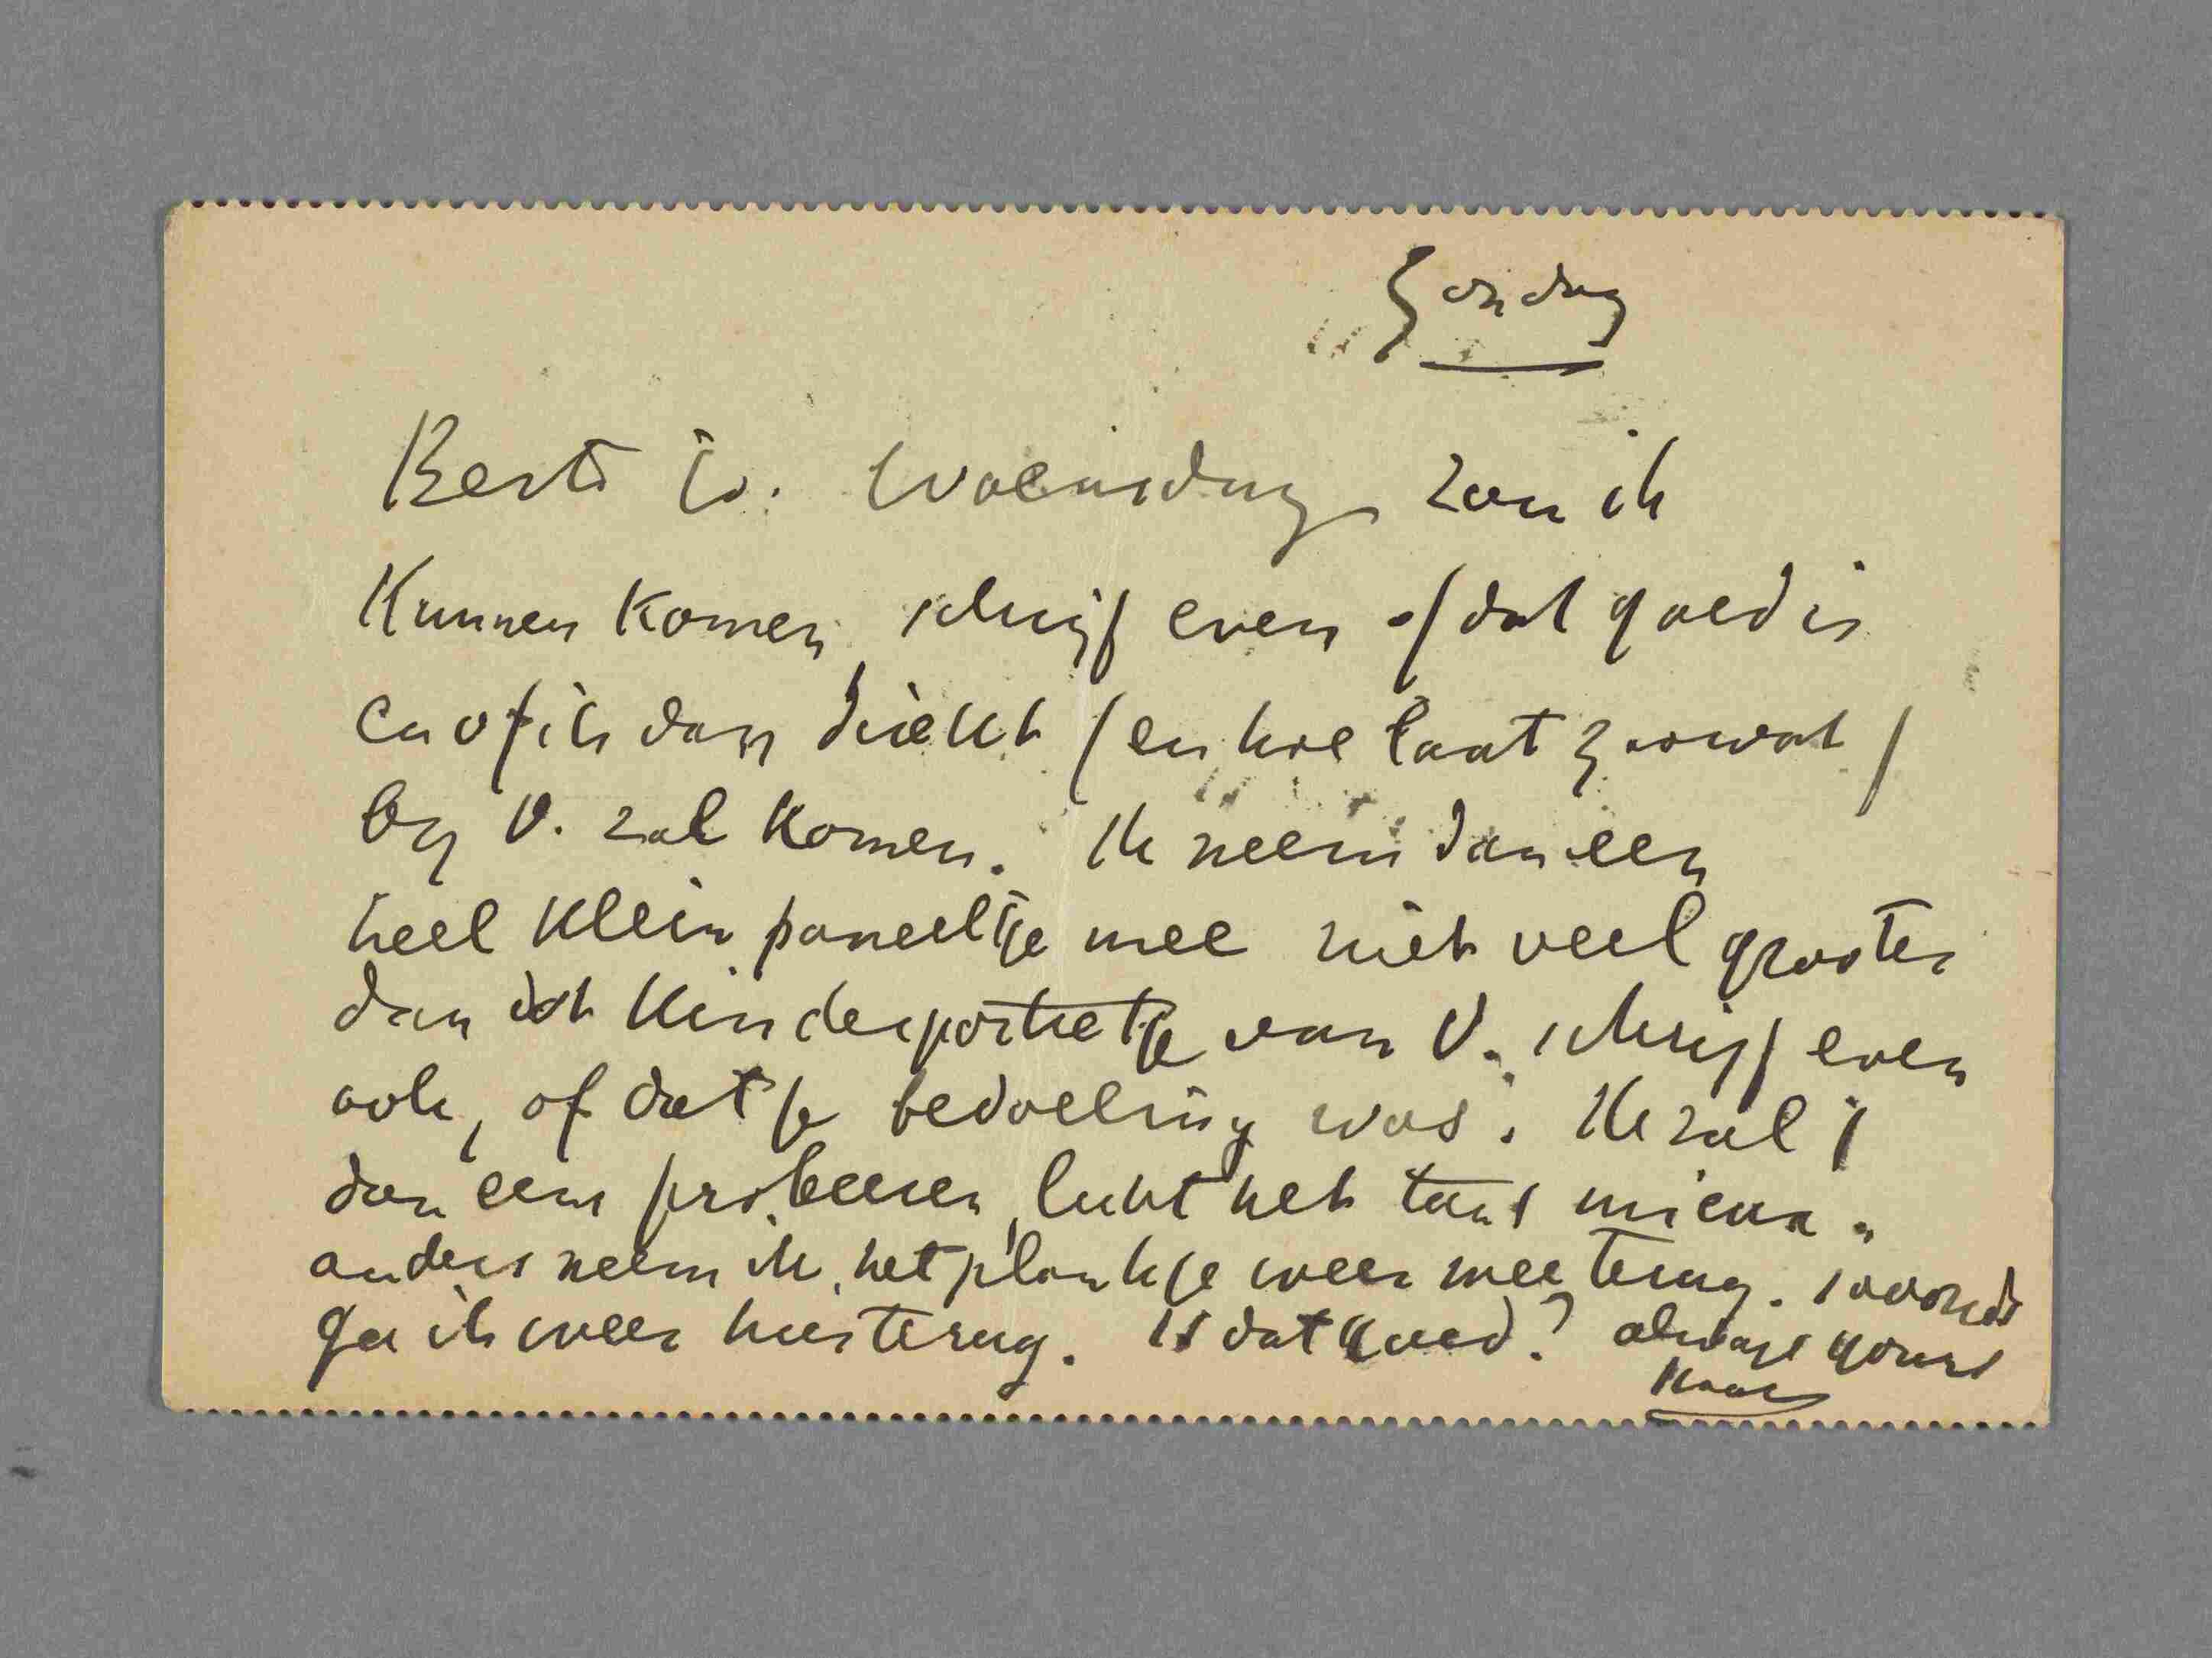 Zondag
Beste Co. Woensdag zou ik
kunnen komen, schrijf even of dat goed is
en of ik dan direkt (en hoe laat zoowat)
by V. zal komen. Ik neem dan een
heel klein paneeltje mee niet veel grooter
dan dat kinderportretje van V. schrijf even
ook, of dat je bedoeling was. Ik zal 't
dan eens probeeren, lukt het tant mieux.
anders neem ik het plankje weer mee terug. 's avonds
ga ik weer hier terug. is dat goed? always yours